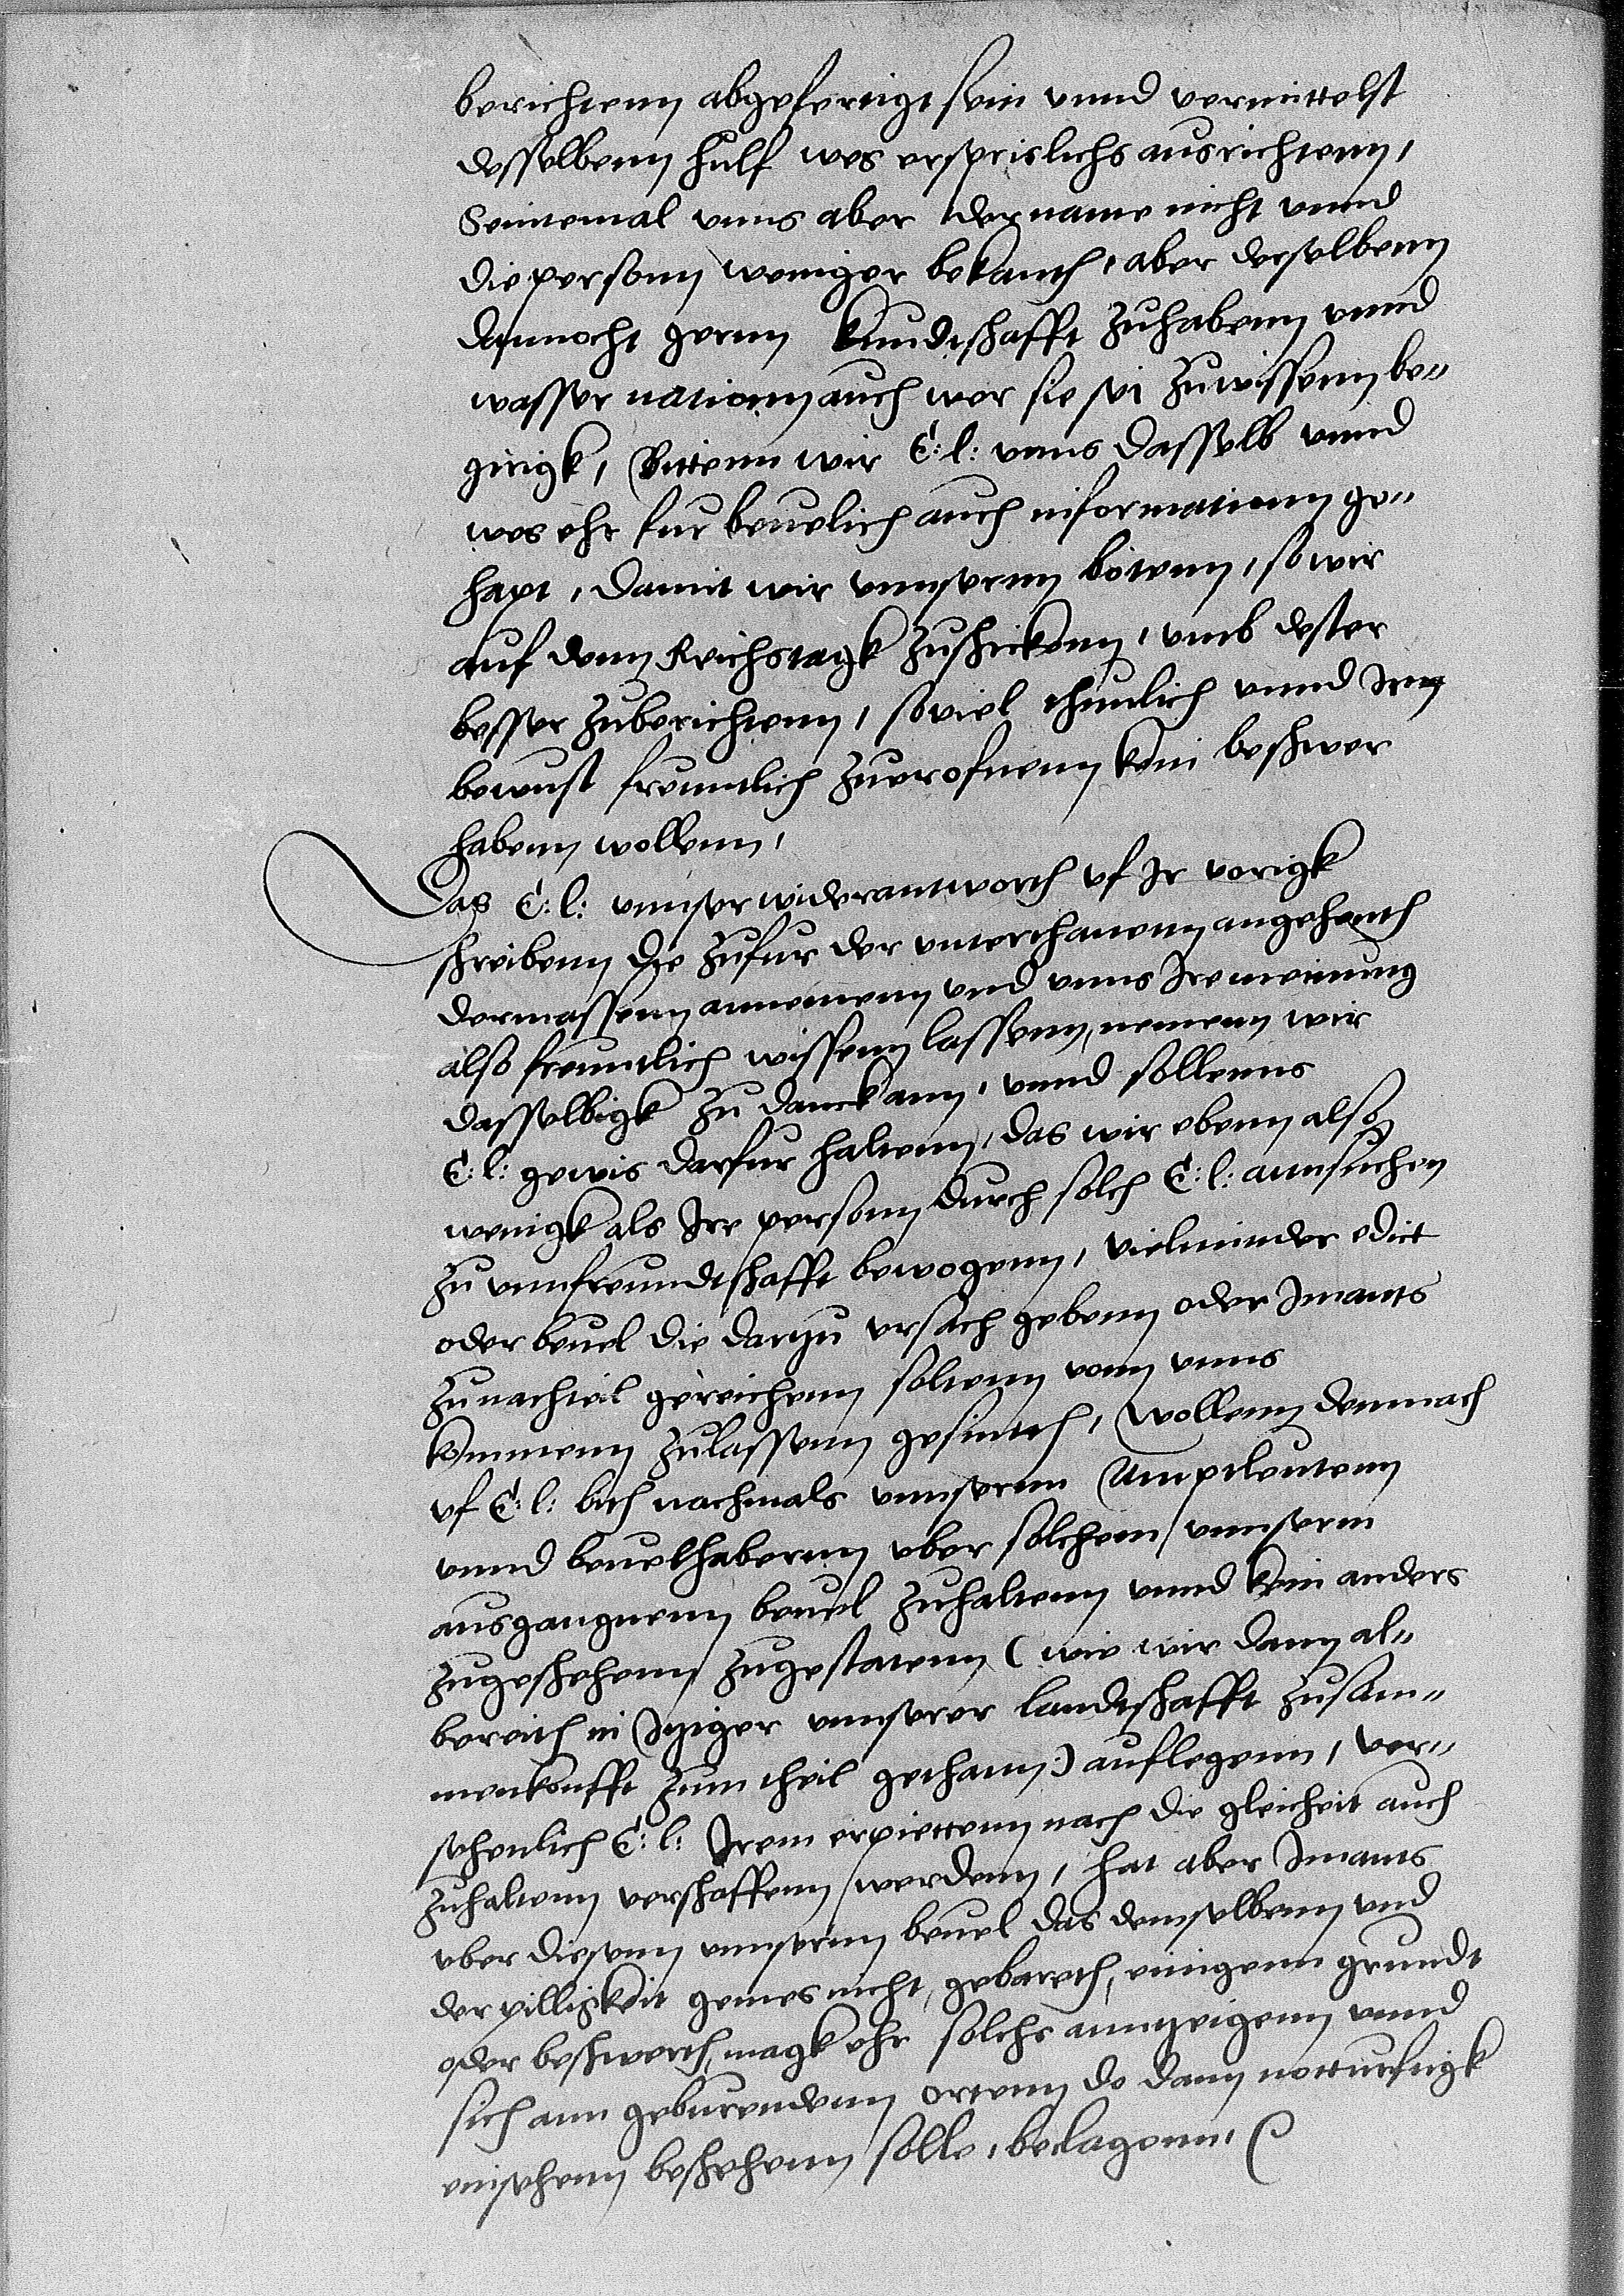 berichtenn abgefertigt sein vnnd vermittelst
desselbenn hulf wes ersprislichs ausrichtenn,
Seintemal vnns aber der name nicht vnnd
die personn weniger bekanth, aber derselbenn
dannocht gernn kundtschafft zuhabenn vnnd
wasser nationn auch wer sie sei zuwissenn be„
girigk, Bittenn wir E: l: vnns dasselb vnnd
wes ehr fur beuelich auch informationn ge„
hapt, damit wir vnnserenn botenn, so wir
auf denn Reichstagk zuschickenn, vmb dester
besser zuberichtenn, soviel thunlich vnnd Iren
bewust freuntlich zuerofnenn kein beschwer
habenn wollenn,
Das E: l: vnnser widerantworth vf Ir vorigk
schreibenn die zufur der vnterthanenn angehenth
dermassenn annemenn vnd vnns Ire meinung
also freuntlich wissenn lassenn, nemenn wir
dasselbigk zu danck ann, vnnd sollenns
E: l: gewis darfur haltenn, das wir ebenn also
wenigk als Ire personn durch solch E: l: annsuchen
zu vnnfreundtschafft bewogenn, vielminder edict
oder beuel die darzu vrsach gebenn oder Imants
zu nachteil gereichenn soltenn vonn vnns
kommenn zulassenn gesinth, Wollenn demnach
vf E: l: bith nachmals vnnserenn Amptleutenn
vnnd beuelhabernn vber solchem vnnserm
ausgangnenn beuel zuhaltenn vnnd kein anders
zugeschehenn zugestatenn (wie wir dann al„
bereith in Itziger vnnserer landtschafft zusam„
menkonfft zum theil gethann:) auflegenn, ver„
sehenlich E: l: Irem erpiettenn nach die gleicheit auch
zuhaltenn verschaffenn werdenn, hat aber Imants
vber diesenn vnnsernn beuel das demselbenn vnd
der pilligkeit gemes nicht gebareth, einigenn grundt
oder beschwerth, magk ehr solchs annzeigenn vnnd
sich ann geburendenn ortenn do dann notturftigk
einsehenn beschehenn solle, beclagenn,